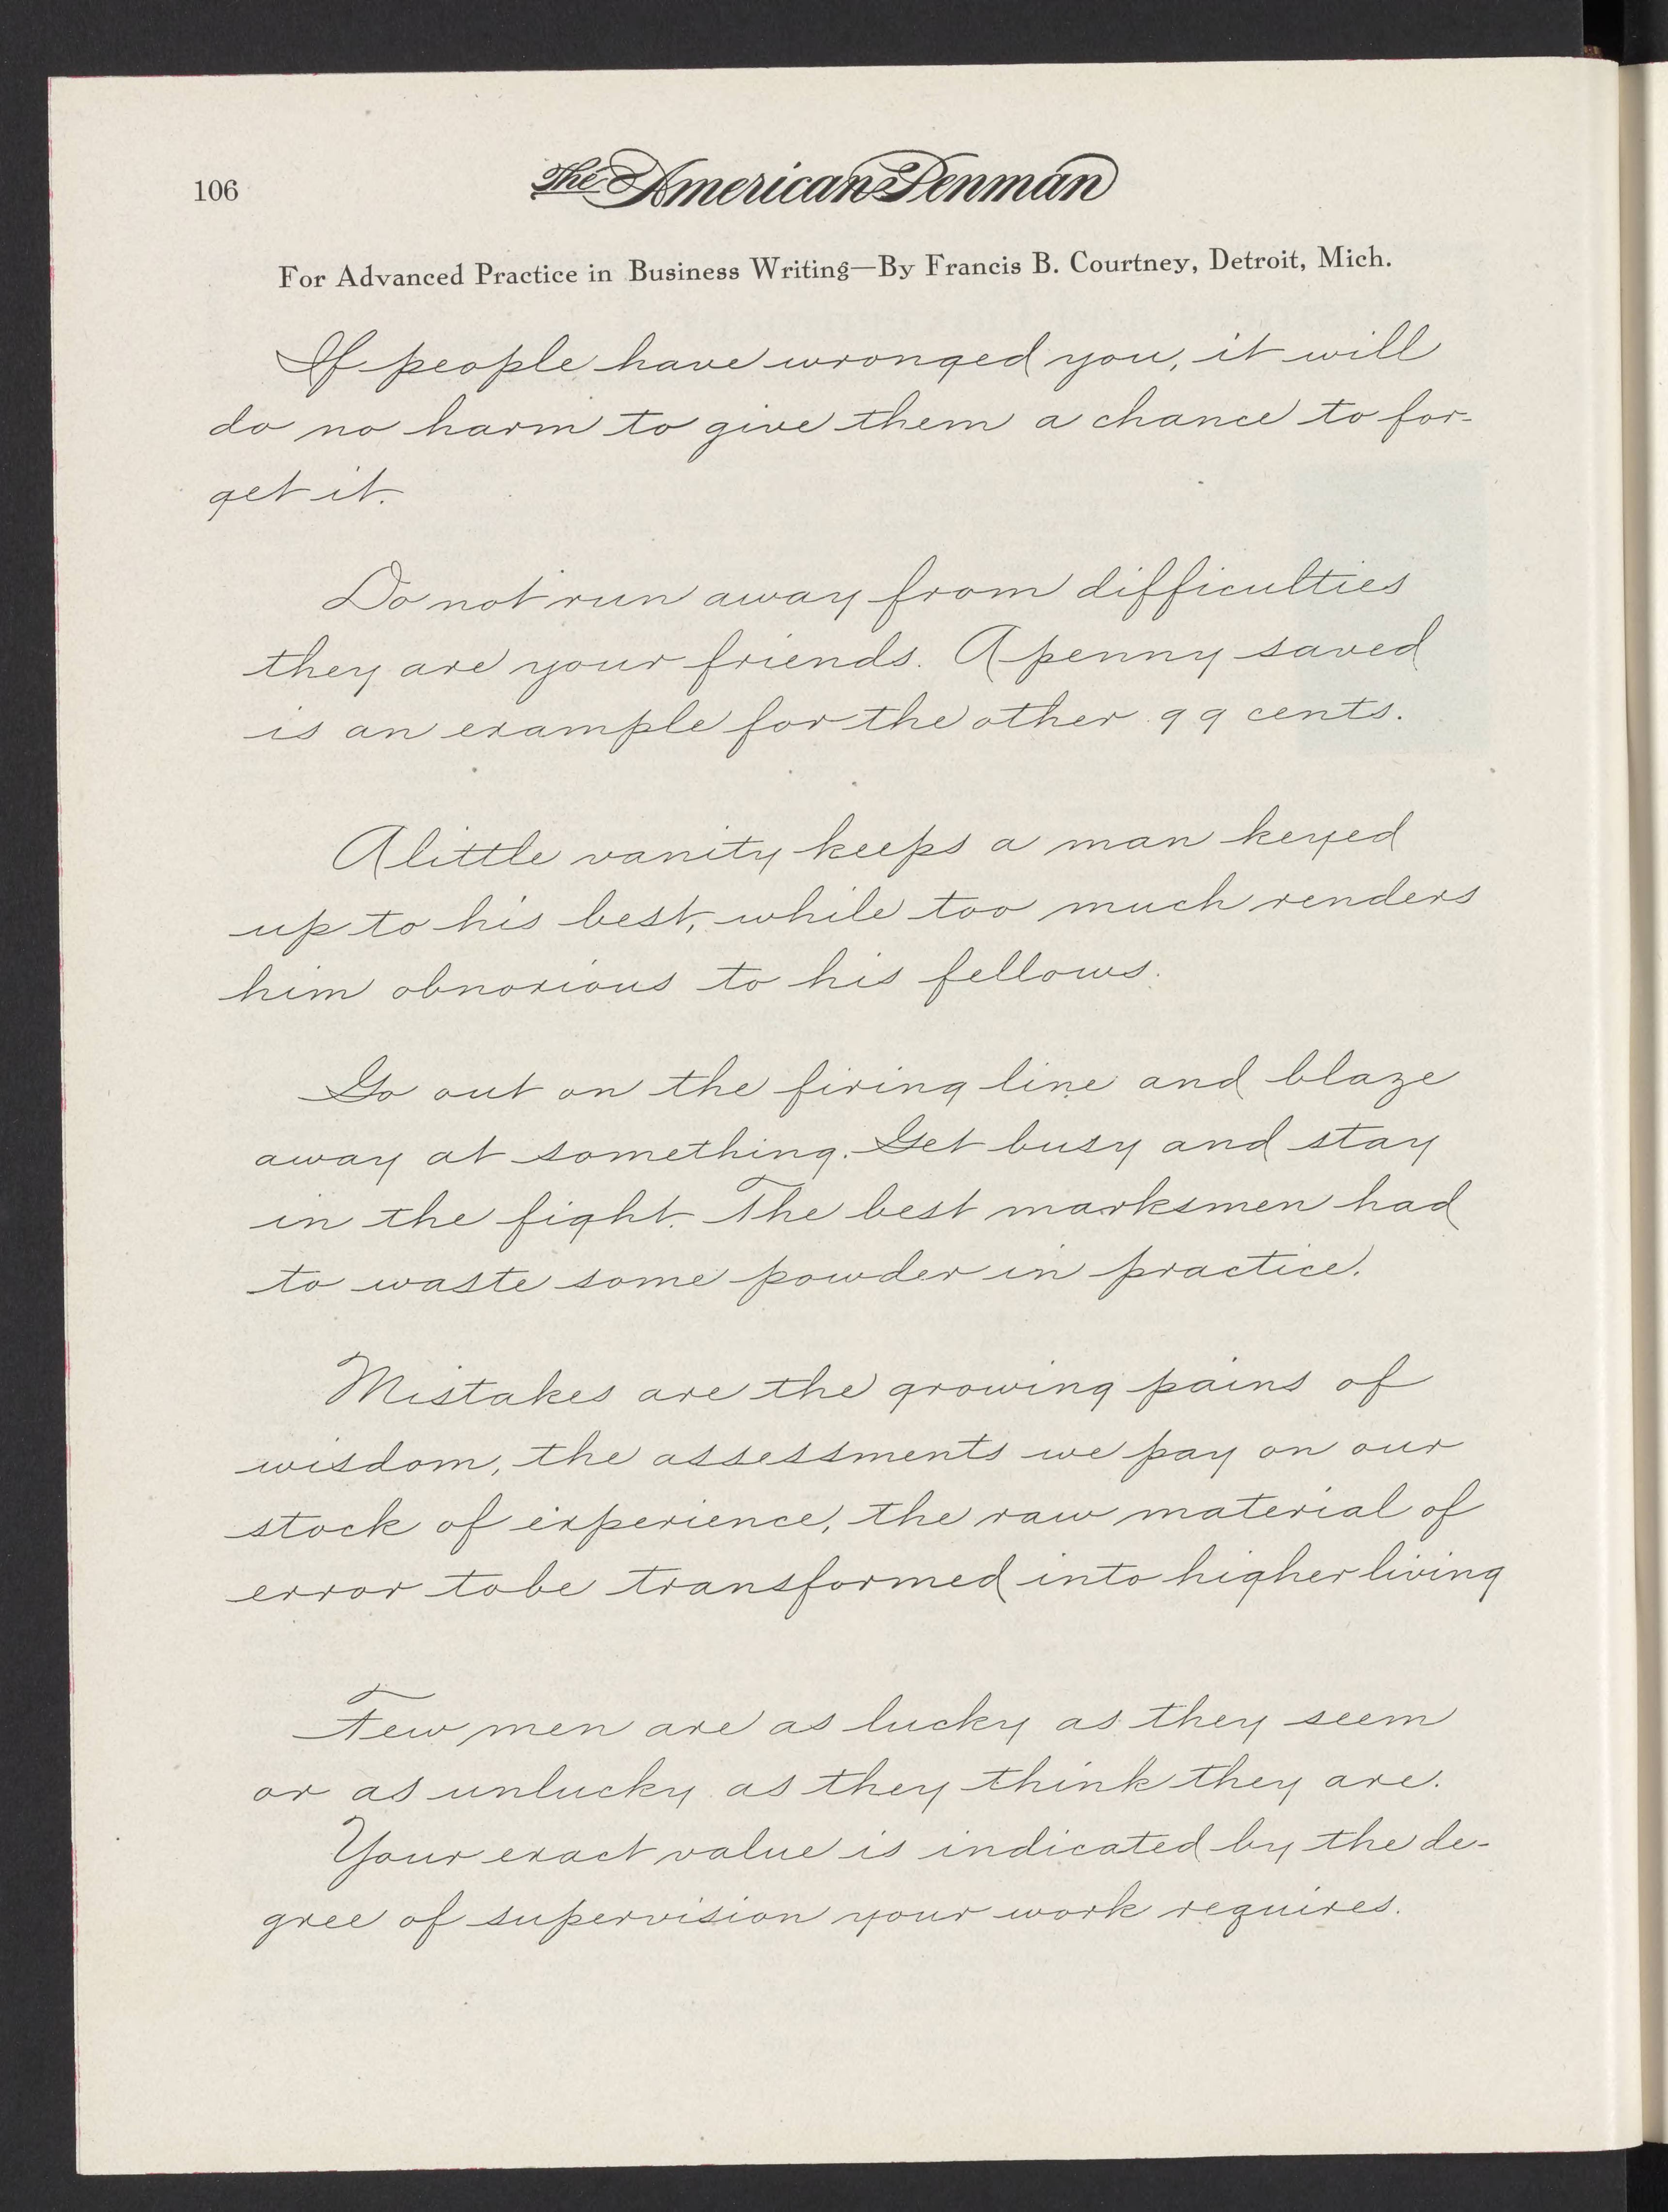 106
The American Penman
For Advanced Practice in Business Writing—By Francis B. Courtney, Detroit, Mich.
If people have wronged you, it will
do no harm to give them a chance to for-
get it.
Do not run away from difficulties
they are your friends. A penny saved
is an example for the other 99 cents.
A little vanity keeps a man keyed
up to his best, while too much renders
him obnoxious to his fellows.
Go out on the firing line and blaze
away at something. Get busy and stay
in the fight. The best marksmen had
to waste some powder in practice.
Mistakes are the growing pains of
wisdom, the assessments we pay on our
stock of experience, the raw material of
error to be transformed into higher living
Few men are as lucky as they seem
or as unlucky as they think they are.
Your exact value is indicated by the de-
gree of supervision your work requires.